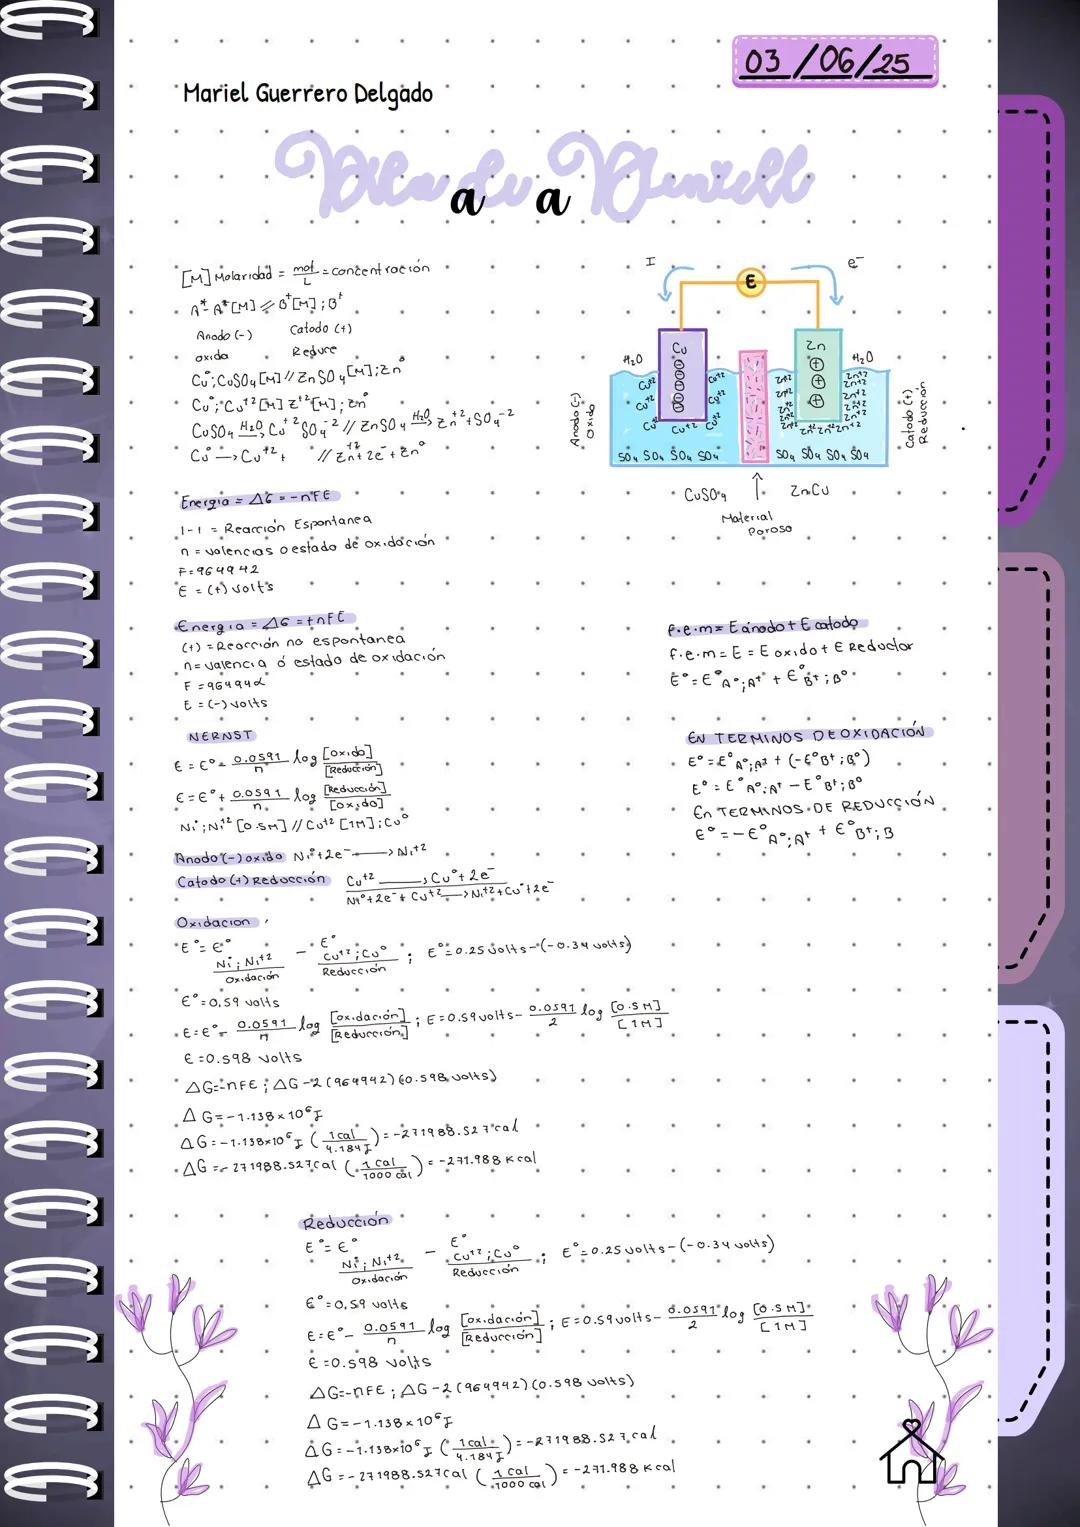 03/06/25
Mariel Guerrero Delgado
a a
[M] Molaridad = mol/L = concentración
A° A⁺[M] // B⁺[M] ; B⁺
Anodo (-) Catodo (+)
oxida Reduce
Cu°; CuSO₄ [M] // ZnSO₄ [M]; Zn°
Cu°; Cu⁺² [M] Z⁺² [M]; Zn°
CuSO₄ H₂O→ Cu⁺² SO₄⁻² // ZnSO₄ H₂O→ Zn⁺² + SO₄⁻²
Cu° → Cu⁺² + // Zn⁺² + 2e⁻ + Zn°
I e⁻
E
Cu Zn
H₂O H₂O
Cu⁺² Cu⁺² Zn⁺² Zn⁺²
Cu⁺² Cu⁺² Zn⁺² Zn⁺²
Cu⁺² Cu⁺² Cu⁺² Zn⁺² Zn⁺² Zn⁺² Zn⁺²
SO₄ SO₄ SO₄ SO₄ SO₄ SO₄ SO₄ SO₄
Anodo (-)
Oxido
Catodo (+)
Reducción
CuSO₄ ↑ ZnCu
Material
Poroso
Energia = ΔG = -nFE
1-1 = Reacción Espontanea
n = valencias o estado de oxidación
F = 964942
E = (+) volts
Energia = ΔG = +nFE
(+) = Reacción no espontanea
n = valencia ó estado de oxidación
F = 96494
E = (-) volts
f.e.m = E ánodo + E catodo
f.e.m = E = E oxido + E Reductor
E° = E°A°;A⁺ + E°B⁺;B°
NERNST
E = E° - 0.0591/n log [oxido]/[Reducción]
E = E° + 0.0591/n log [Reducción]/[oxido]
Ni°; Ni⁺² [0.5M] // Cu⁺² [1M]; Cu°
EN TERMINOS DE OXIDACIÓN
E° = E°A°;A⁺ + (-E°B⁺;B°)
E° = E°A°;A⁺ - E°B⁺;B°
En TERMINOS DE REDUCCIÓN
E° = -E°A°;A⁺ + E°B⁺;B
Anodo (-) oxido Ni° + 2e⁻ → Ni⁺²
Catodo (+) Reducción Cu⁺² → Cu° + 2e⁻
Ni° + 2e⁻ + Cu⁺² → Ni⁺² + Cu° + 2e⁻
Oxidacion
E° = E° Ni°; Ni⁺² / Oxidación - E° Cu⁺²; Cu° / Reducción ; E° = 0.25 volts - (-0.34 volts)
E° = 0,59 volts
E = E° - 0.0591/n log [oxidación]/[Reducción] ; E = 0.59 volts - 0.0591/2 log [0.5M]/[1M]
E = 0.598 volts
ΔG = -nFE ; ΔG -2 (964942) (0.598 volts)
ΔG = -1.138 x 10⁶ J
ΔG = -1.138x10⁶ J (1 cal/4.184 J) = -271988.527 cal
ΔG = -271988.527 cal (1 cal/1000 cal) = -271.988 Kcal
Reducción
E° = E° Ni°; Ni⁺² / Oxidación - E° Cu⁺²; Cu° / Reducción ; E° = 0.25 volts - (-0.34 volts)
E° = 0,59 volts
E = E° - 0.0591/n log [oxidación]/[Reducción] ; E = 0.59 volts - 0.0591/2 log [0.5M]/[1M]
E = 0.598 volts
ΔG = -nFE ; ΔG -2 (964942) (0.598 volts)
ΔG = -1.138 x 10⁶ J
ΔG = -1.138x10⁶ J (1 cal/4.184 J) = -271988.527 cal
ΔG = -271988.527 cal (1 cal/1000 cal) = -271.988 Kcal